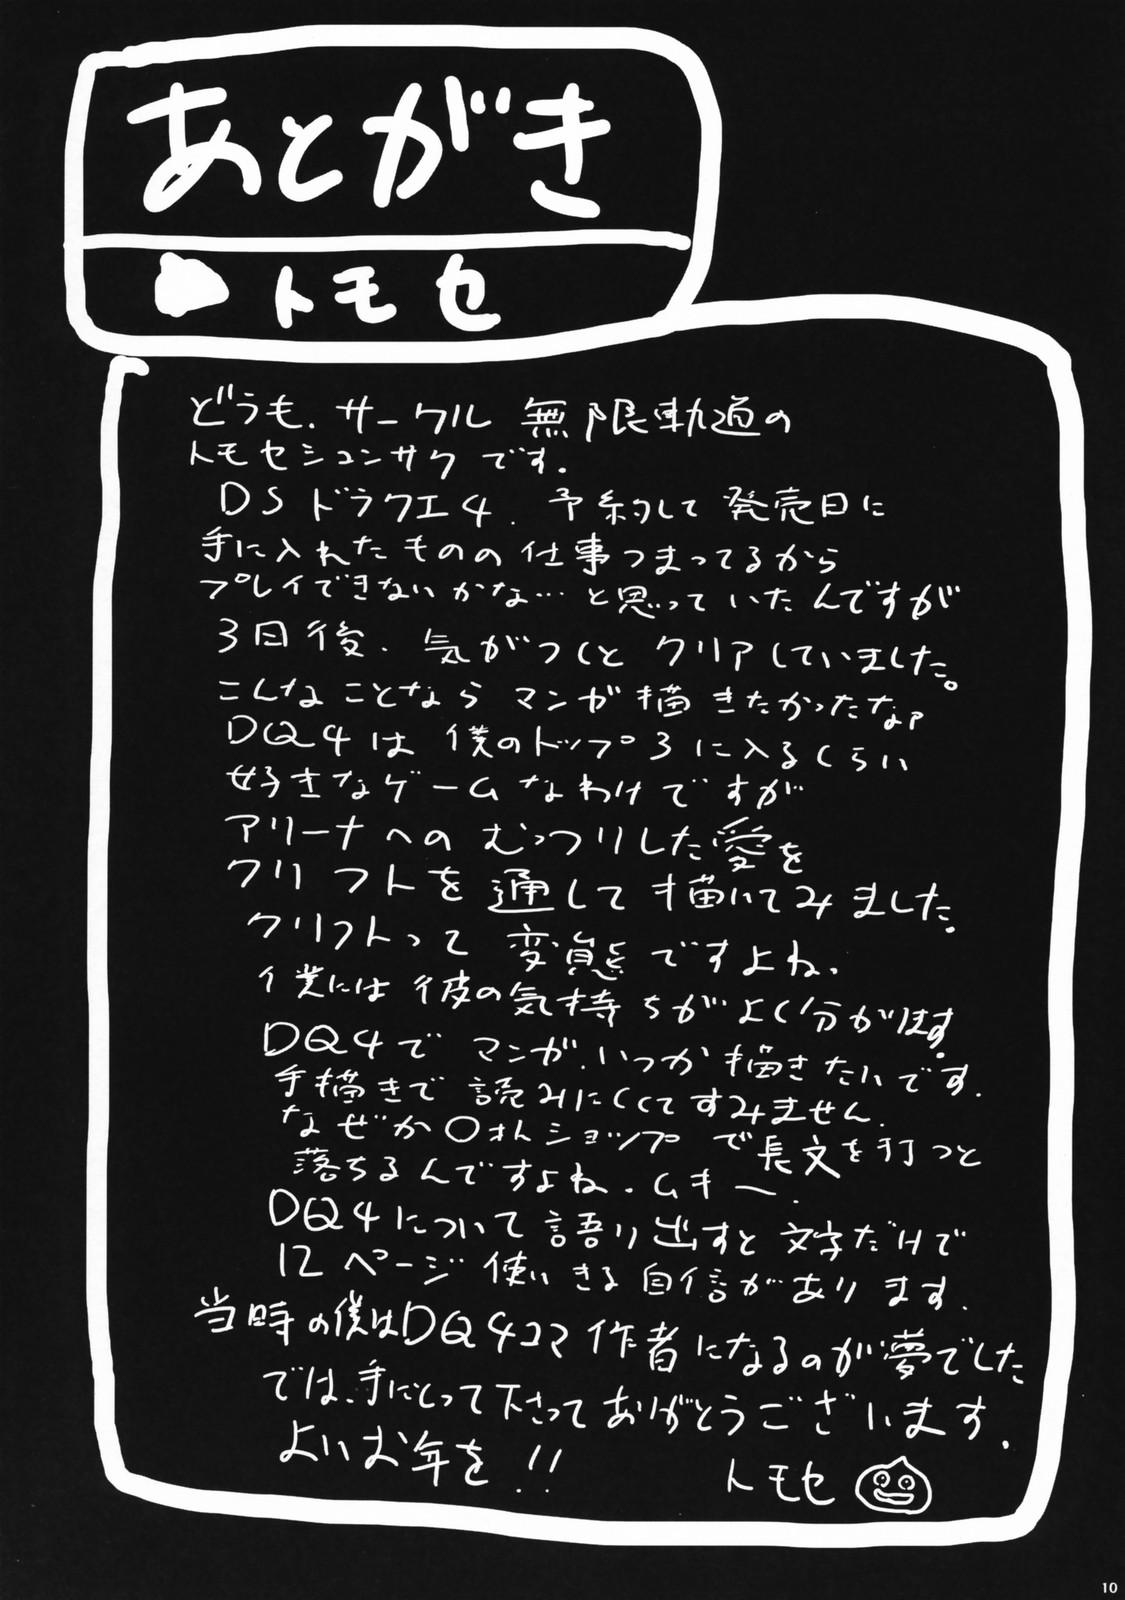 あとがき
トモセ
どうも、サークル 無限軌道の
トモセシュンサクです.
DSドラクエ4、予約して発売日に
手に入れたものの仕事つまってるから
プレイできないかな…と思っていたんですが
3日後、気がつくとクリアしていました。
こんなことならマンガ描きたかったなァ
DQ4は僕のトップ3に入るくらい
好きなゲームなわけですが
アリーナへのむっつりした愛を
クリフトを通して描いてみました.
クリフトって変態ですよね.
僕には彼の気持ちがよく分かります.
DQ4でマンガ、いつか描きたいです.
手描きで読みにくくてすみません.
なぜか○オトショップで長文を打つと
落ちるんですよね.ムキー.
DQ4について語り出すと文字だけで
12ページ使いきる自信があります.
当時の僕はDQ4コマ作者になるのが夢でした
では、手にとって下さってありがとうございます.
よいお年を!!
トモセ
10